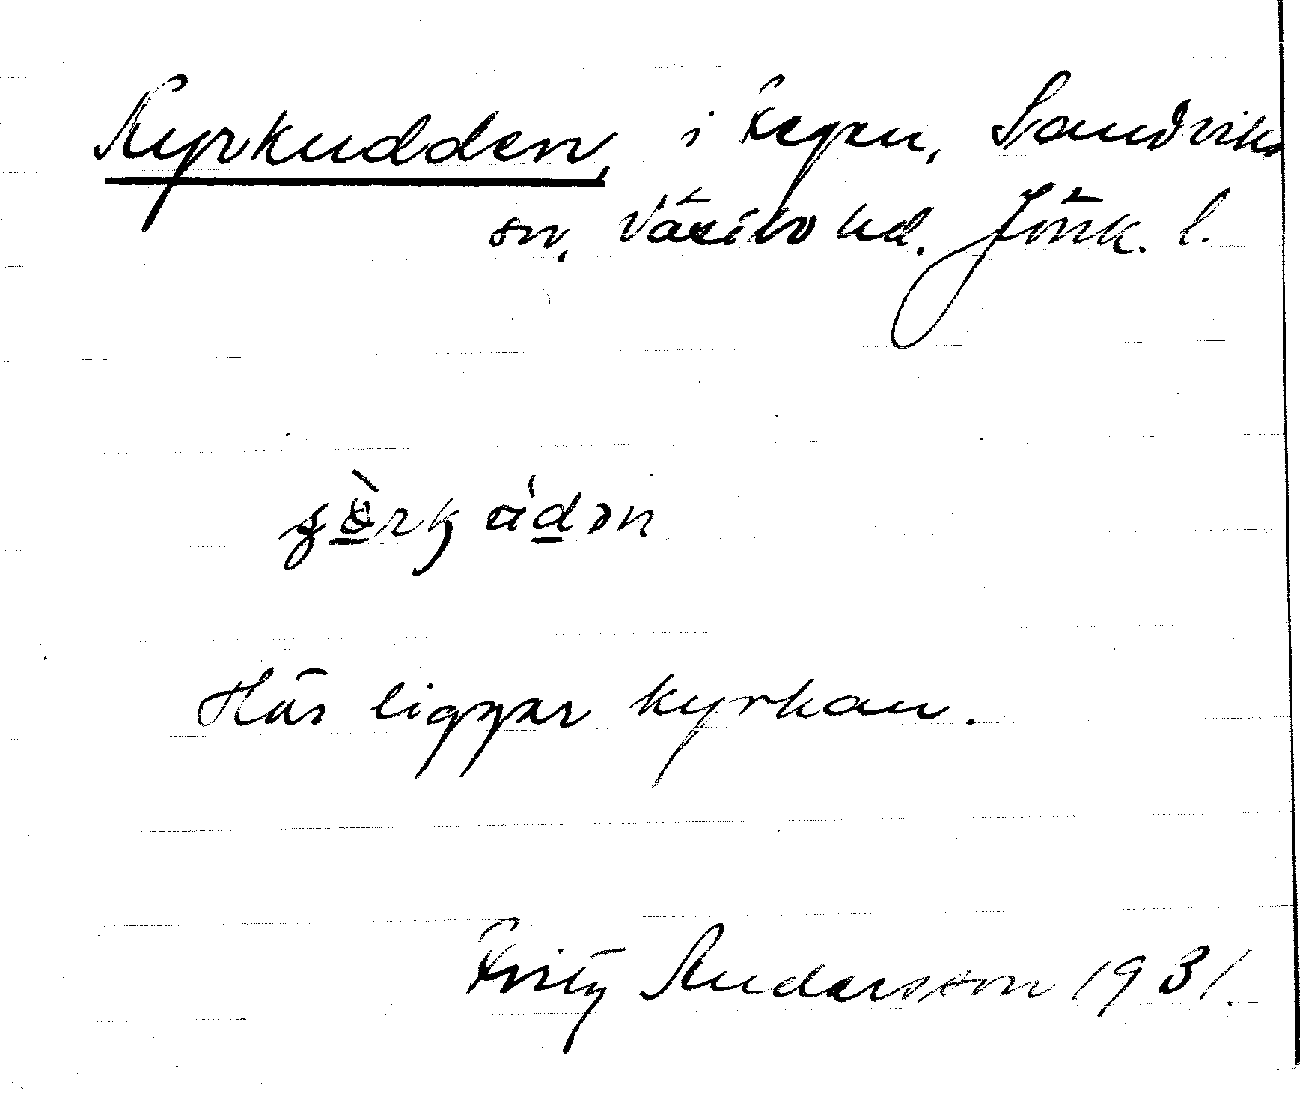 Kyrkudden, i Fegen, Sandviks
sn, Västbo hd. Jönk. l.
Här ligger kyrkan.
Fritz Andersson 1931.